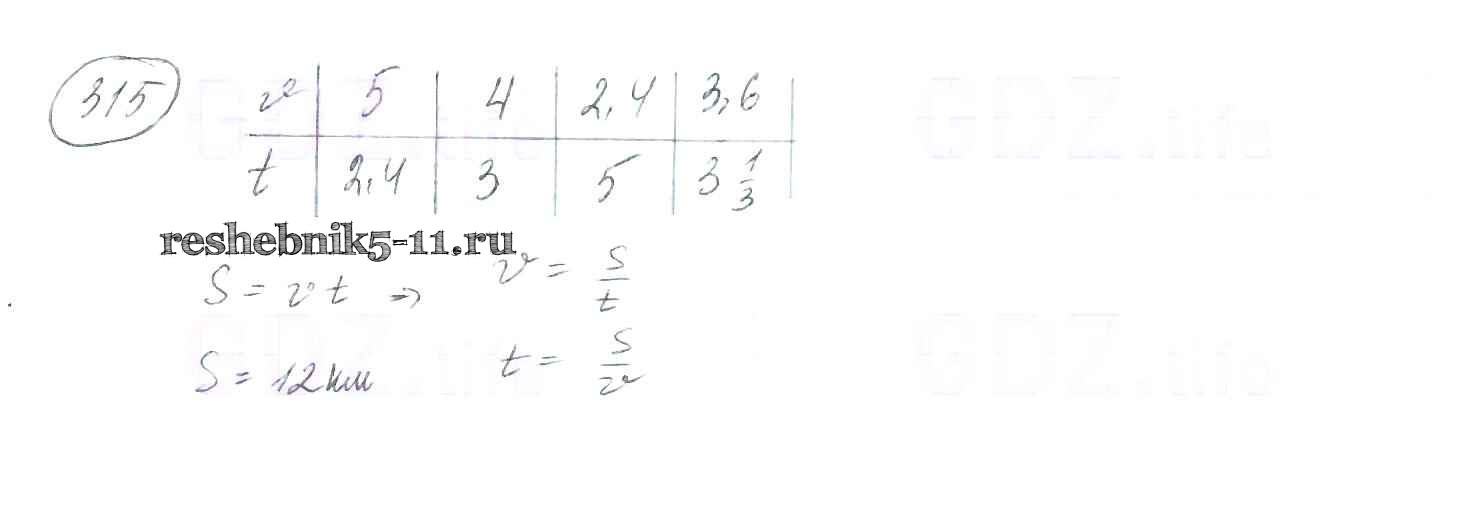 315
v | 5 | 4 | 2,4 | 3,6
t | 2,4 | 3 | 5 | 3 1/3
reshebnik5-11.ru
S = vt ⇒ v = S/t
S = 12 км t = S/v
GDZ.life GDZ.life
GDZ.life GDZ.life